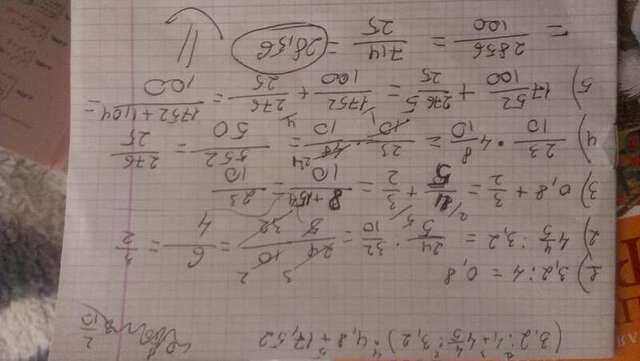 (3,2:4+4 4/5:3,2)·4,8+17,52
1) 3,2:4=0,8
2) 4 4/5:3,2=24/5:32/10=24·10/5·32=6/4=3/2
3) 0,8+3/2=4/5+3/2=8+15/10=23/10
4) 23/10·4 8/10=23/10·48/10=552/50=276/25
5) 17 52/100+276/25=1752/100+276/25=1752+1104/100=
=2856/100=714/25=28,56